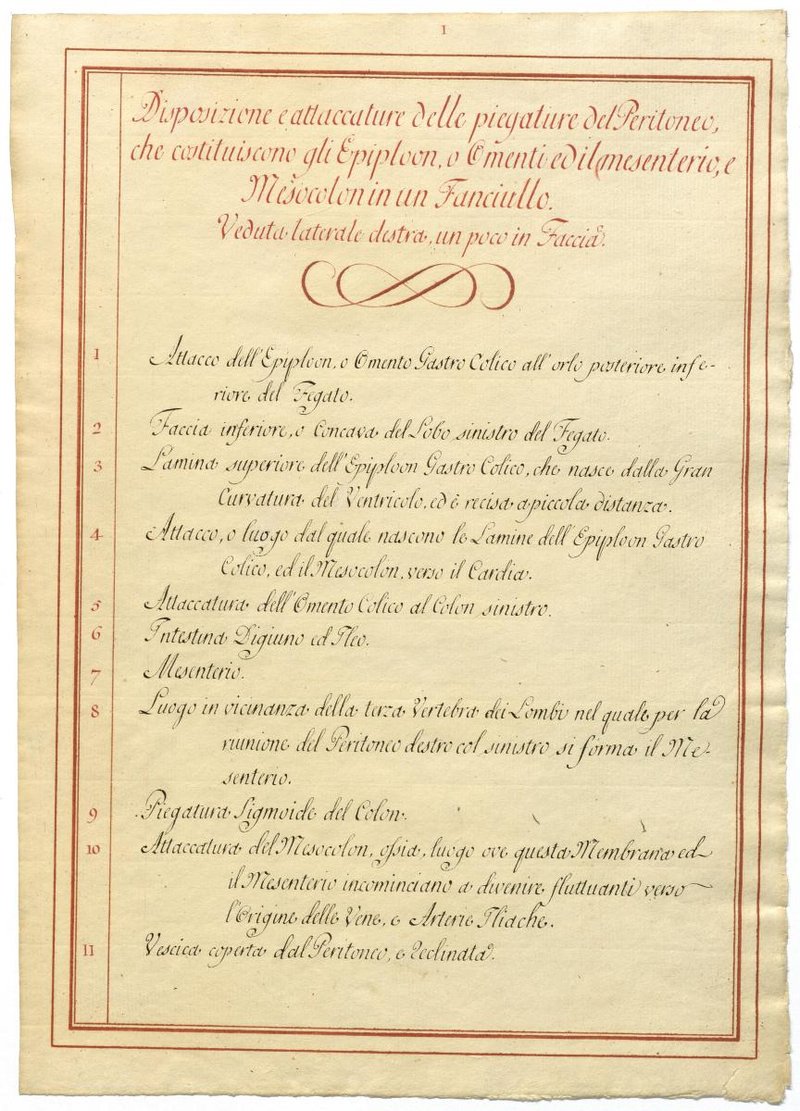 1
Disposizione e attaccature delle piegature del Peritoneo,
che costituiscono gli Epiploon, o Omenti ed il mesenterio, e
Mesocolon in un Fanciullo.
Veduta laterale destra, un poco in Faccia.
1 Attacco dell'Epiploon, o Omento Gastro Colico all'orlo posteriore infe-
riore del Fegato.
2 Faccia inferiore, o Concava del Lobo sinistro del Fegato.
3 Lamina superiore dell'Epiploon Gastro Colico, che nasce dalla Gran
Curvatura del Ventricolo, ed è recisa a piccola distanza.
4 Attacco, o luogo dal quale nascono le Lamine dell'Epiploon Gastro
Colico, ed il Mesocolon, verso il Cardia.
5 Attaccatura dell'Omento Colico al Colon sinistro.
6 Intestina Digiuno ed Ileo.
7 Mesenterio.
8 Luogo in vicinanza della terza Vertebra dei Lombi nel quale per la
riunione del Peritoneo destro col sinistro si forma il Me-
senterio.
9 Piegatura Sigmoide del Colon.
10 Attaccatura del Mesocolon, ossia, luogo ove questa Membrana ed
il Mesenterio incominciano a divenire fluttuanti verso
l'Origine delle Vene, e Arterie Iliache.
11 Vescica coperta dal Peritoneo, e reclinata.